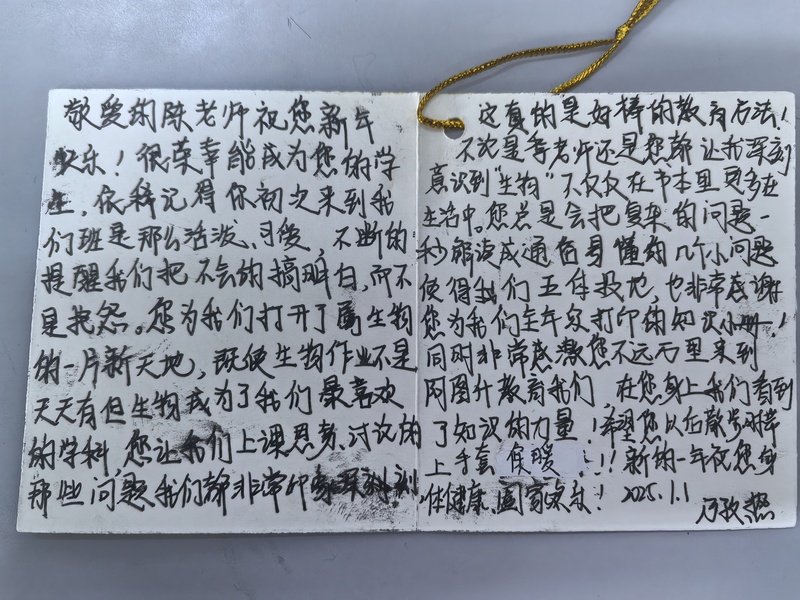 敬爱的陈老师祝您新年
快乐！很荣幸能成为您的学
生,依稀记得你初次来到我
们班是那么活泼、可爱,不断的
提醒我们把不会的搞明白,而不
是抱怨。您为我们打开了属生物
的一片新天地,既使生物作业不是
天天有但生物成为了我们最喜欢
的学科,您让我们上课思考、讨论的
那些问题我们都非常印象深刻
这真的是好棒的教育方法！
不光是季老师还是您都让我深刻
意识到“生物”不仅仅在书本里更多在
生活中。您总是会把复杂的问题一
秒解读成通俗易懂的几个小问题
使得我们五体投地,也非常感谢
您为我们全年级打印的知识小册！
同时非常感激您不远万里来到
阿图什教育我们,在您身上我们看到
了知识的力量！希望您以后散步时带
上手套保暖！！新的一年祝您身
体健康、阖家欢乐！2025.1.1